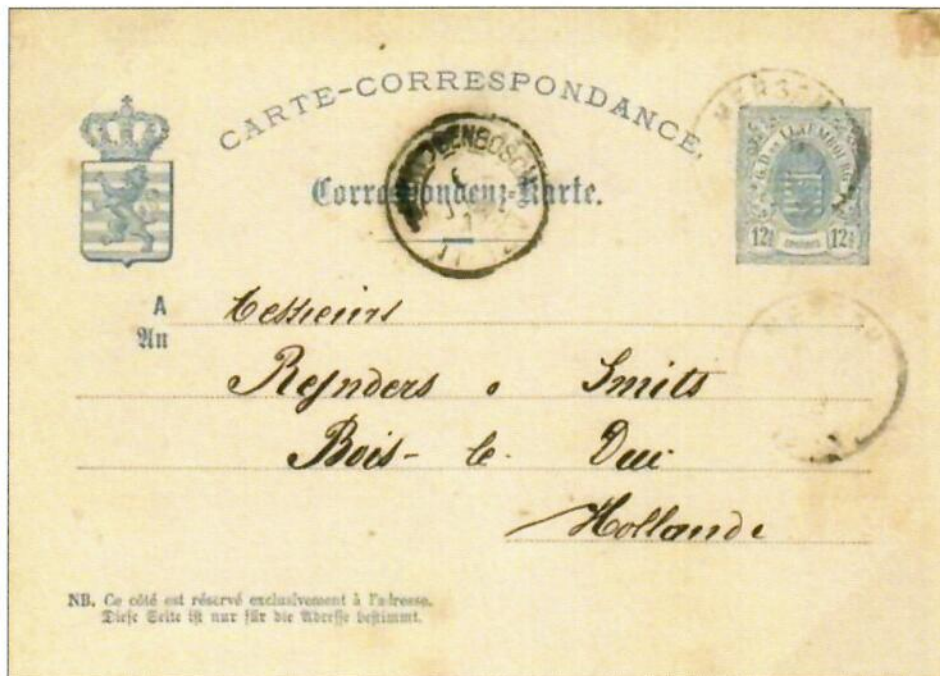 CARTE-CORRESPONDANCE.
Correspondenz-Karte.
G. D. DE LUXEMBOURG
12½ CENTIMES 12½
A
An
Messieurs
Reynders & Smits
Bois-le-Duc
Hollande
NB. Ce côté est réservé exclusivement à l'adresse.
Diese Seite ist nur für die Adresse bestimmt.